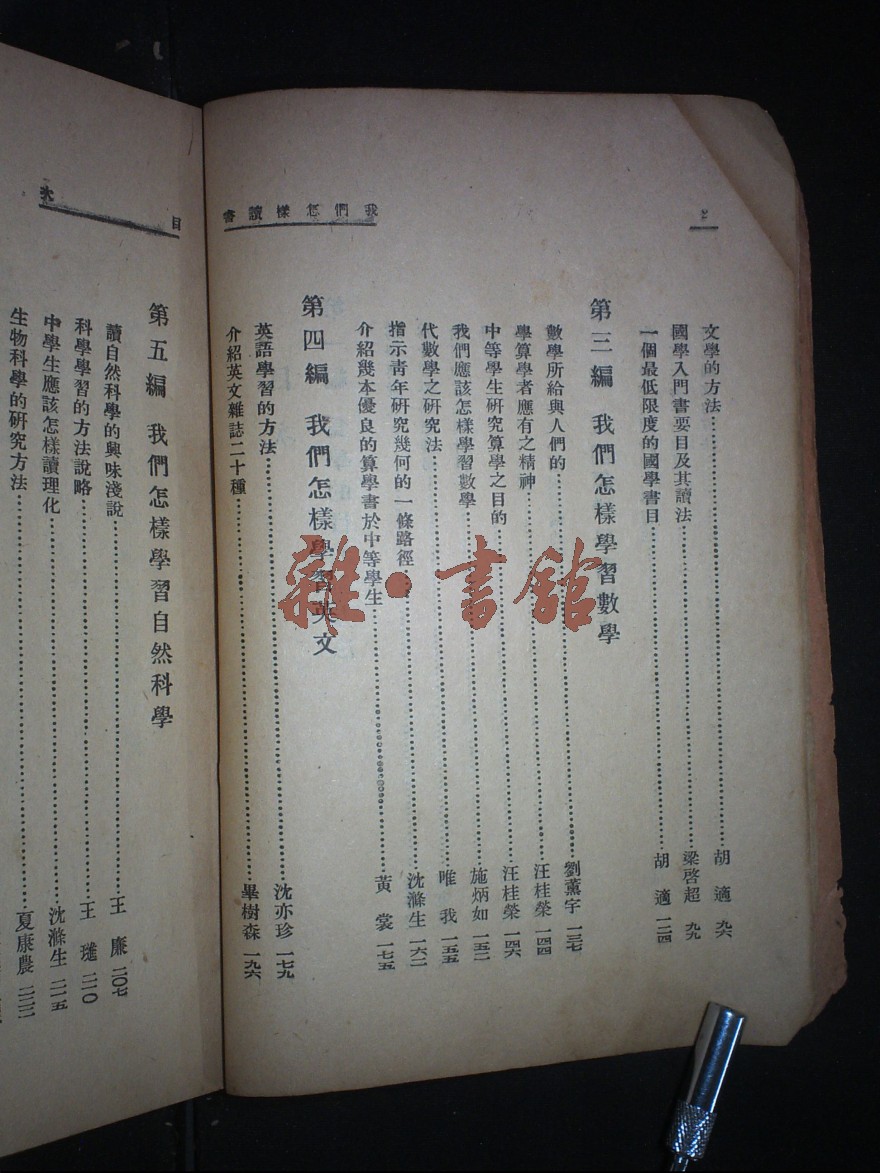 2
我們怎樣讀書
文學的方法……胡適 九六
國學入門書要目及其讀法……梁啓超 九九
一個最低限度的國學書目……胡適 一二四
第三編 我們怎樣學習數學
數學所給與人們的……劉薰宇 一三七
學算學者應有之精神……汪桂榮 一四四
中等學生研究算學之目的……汪桂榮 一四六
我們應該怎樣學習數學……施炳如 一五二
代數學之研究法……唯我 一五五
指示青年研究幾何的一條路徑……沈滌生 一六二
介紹幾本優良的算學書於中等學生……黃裳 一七五
第四編 我們怎樣學習英文
英語學習的方法……沈亦珍 一七九
介紹英文雜誌二十種……畢樹森 一九六
目次
第五編 我們怎樣學習自然科學
讀自然科學的興味淺說……王廉 二〇七
科學學習的方法說略……王璡 二一〇
中學生應該怎樣讀理化……沈滌生 二一五
生物科學的研究方法……夏康農 二二二
雜·書館